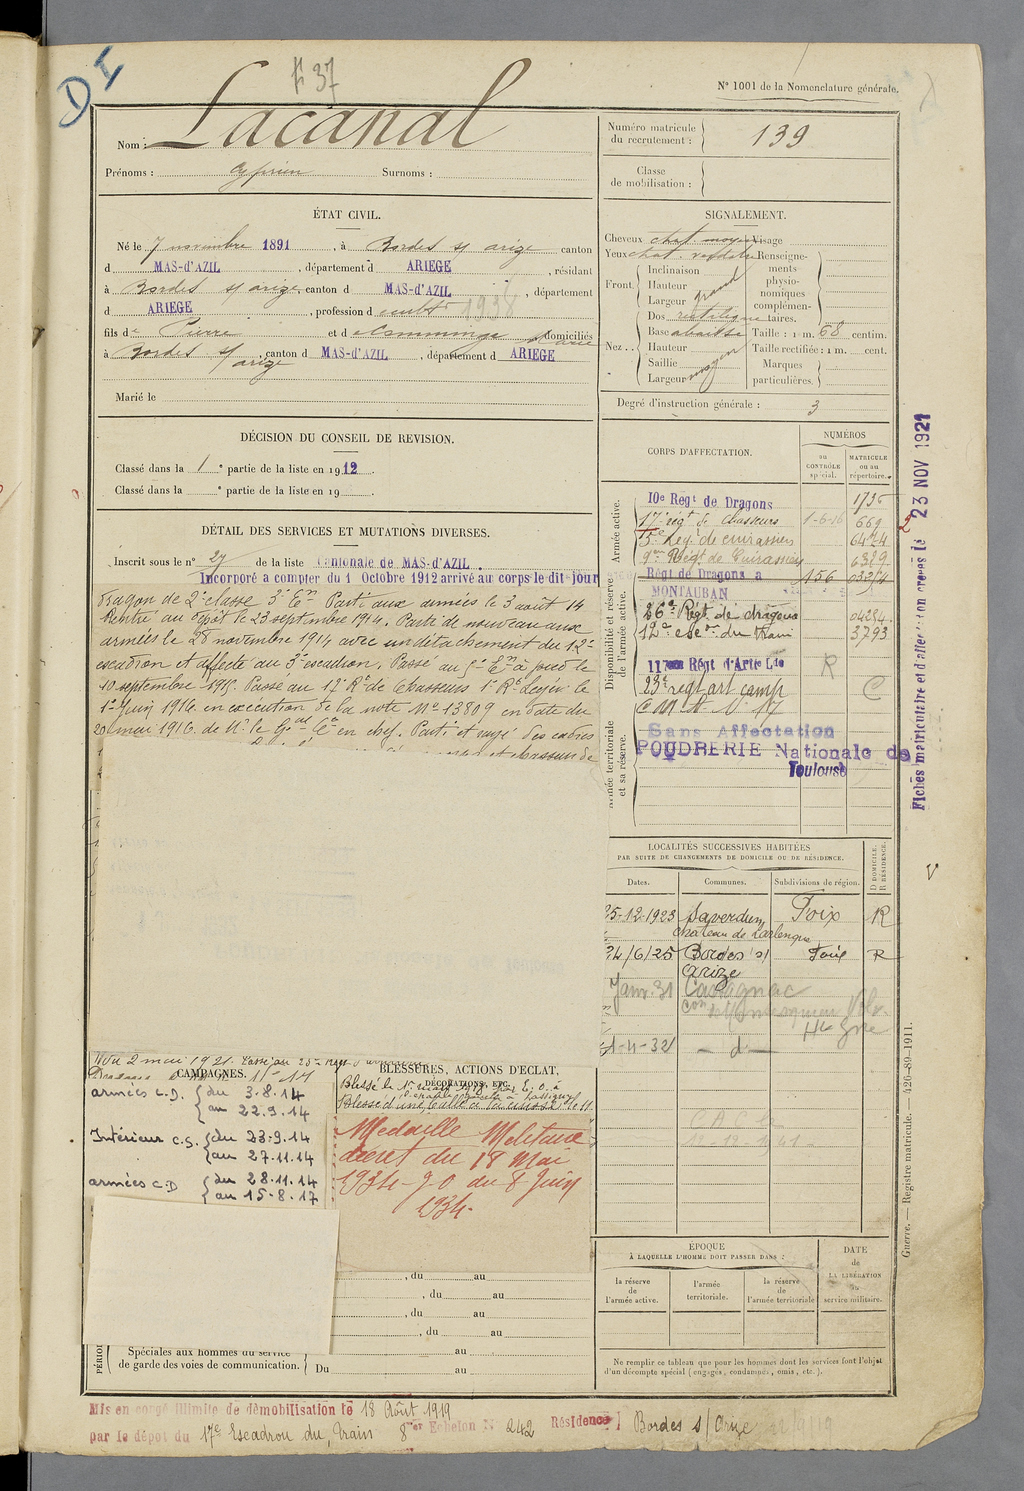 DI
N° 1001 de la Nomenclature générale.
Nom : Lacanal
Prénoms : Cyprien Surnoms :
Numéro matricule du recrutement : 139
Classe de mobilisation :
ÉTAT CIVIL.
Né le 7 novembre 1891, à Bordes s/ arize canton
d MAS-d'AZIL, département d ARIEGE, résidant
à Bordes s/ arize canton d MAS-d'AZIL, département
d ARIEGE, profession de cultr 1938
fils de Pierre et de Comminge Marie domiciliés
à Bordes s/ arize, canton d MAS-d'AZIL, département d ARIEGE
Marié le
SIGNALEMENT.
Cheveux chat. moyen Visage
Yeux chat. verdâtre Renseignements physionomiques complémentaires.
Front. Inclinaison
Hauteur
Largeur grand
Nez.. Dos rectiligne
Base abaissée Taille : 1 m. 68 centim.
Hauteur Taille rectifiée : 1 m. cent.
Saillie Marques particulières.
Largeur moyen
Degré d'instruction générale : 3
DÉCISION DU CONSEIL DE REVISION.
Classé dans la 1e partie de la liste en 1912.
Classé dans la e partie de la liste en 19
DÉTAIL DES SERVICES ET MUTATIONS DIVERSES.
Inscrit sous le n° 27 de la liste Cantonale de MAS-d'AZIL.
Incorporé a compter du 1 Octobre 1912 arrivé au corps le dit jour
Dragon de 2e classe 3e Eon Parti aux armées le 3 août 14
Rentré au dépôt le 23 septembre 1914. Parti de nouveau aux
armées le 28 novembre 1914 avec un détachement du 12e
escadron et affecté au 3e escadron. Passé au 5e Eon à pied le
10 septembre 1915. Passé au 17e Rt de Chasseurs 1er Rt Léger le
1er Juin 1916 en exécution de la note No 13809 en date du
20 mai 1916 de Mr le Gal Ct en chef. Parti et rayé des cadres
CORPS D'AFFECTATION.
NUMÉROS
au CONTRÔLE spécial. MATRICULE ou au répertoire.
Armée active.
10e Regt de Dragons 1736
17e régt de chasseurs 1-6-16 669
5e Reg. de cuirassiers 6424
9me Régt de Cuirassiers 6389
Disponibilité et réserve de l'armée active.
Régt de Dragons a MONTAUBAN 156
26e Régt de dragons
12e escon du train 3793
117e Régt d'Artie Lde R
23e régt art camp C
Armée territoriale et sa réserve.
Sans Affectation
POUDRERIE Nationale de Toulouse
Fiches matriculaire et d'affectation créées le 23 NOV 1921
LOCALITÉS SUCCESSIVES HABITÉES
PAR SUITE DE CHANGEMENTS DE DOMICILE OU DE RÉSIDENCE.
Dates. Communes. Subdivisions de région. D DOMICILE. R RÉSIDENCE.
25-12-1923 Saverdun Foix R
château de Larlenque
24/6/25 Bordes s/ arize Foix R
Janv. 31 Castagnac
Hte Gne
1-4-32 — d —
11-12-1941
du 2 mai 1921.
CAMPAGNES.
armées C.D. du 3.8.14
au 22.9.14
Intérieur C.S. du 23-9.14
au 27.11.14
armées C.D du 28.11.14
au 15-8.17
BLESSURES, ACTIONS D'ÉCLAT,
DÉCORATIONS, ETC.
Médaille Militaire
décret du 18 Mai
1934 - J.O du 8 Juin
1934.
, du au
, du au
, du au
, du au
Spéciales aux hommes du service
de garde des voies de communication. au
Du au
ÉPOQUE
À LAQUELLE L'HOMME DOIT PASSER DANS :
la réserve de l'armée active. l'armée territoriale. la réserve de l'armée territoriale
DATE de LA LIBÉRATION du service militaire.
Ne remplir ce tableau que pour les hommes dont les services font l'objet
d'un décompte spécial (engagés, condamnés, omis, etc.).
Guerre. — Registre matricule. — 426-89-1911.
Mis en congé illimité de démobilisation le 18 Août 1919
par le dépôt du 17e Escadron du Train 8me Echelon N° 242 Résidence Bordes s/ Arize